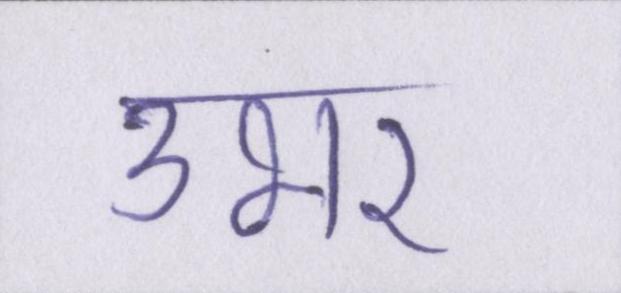 उभर